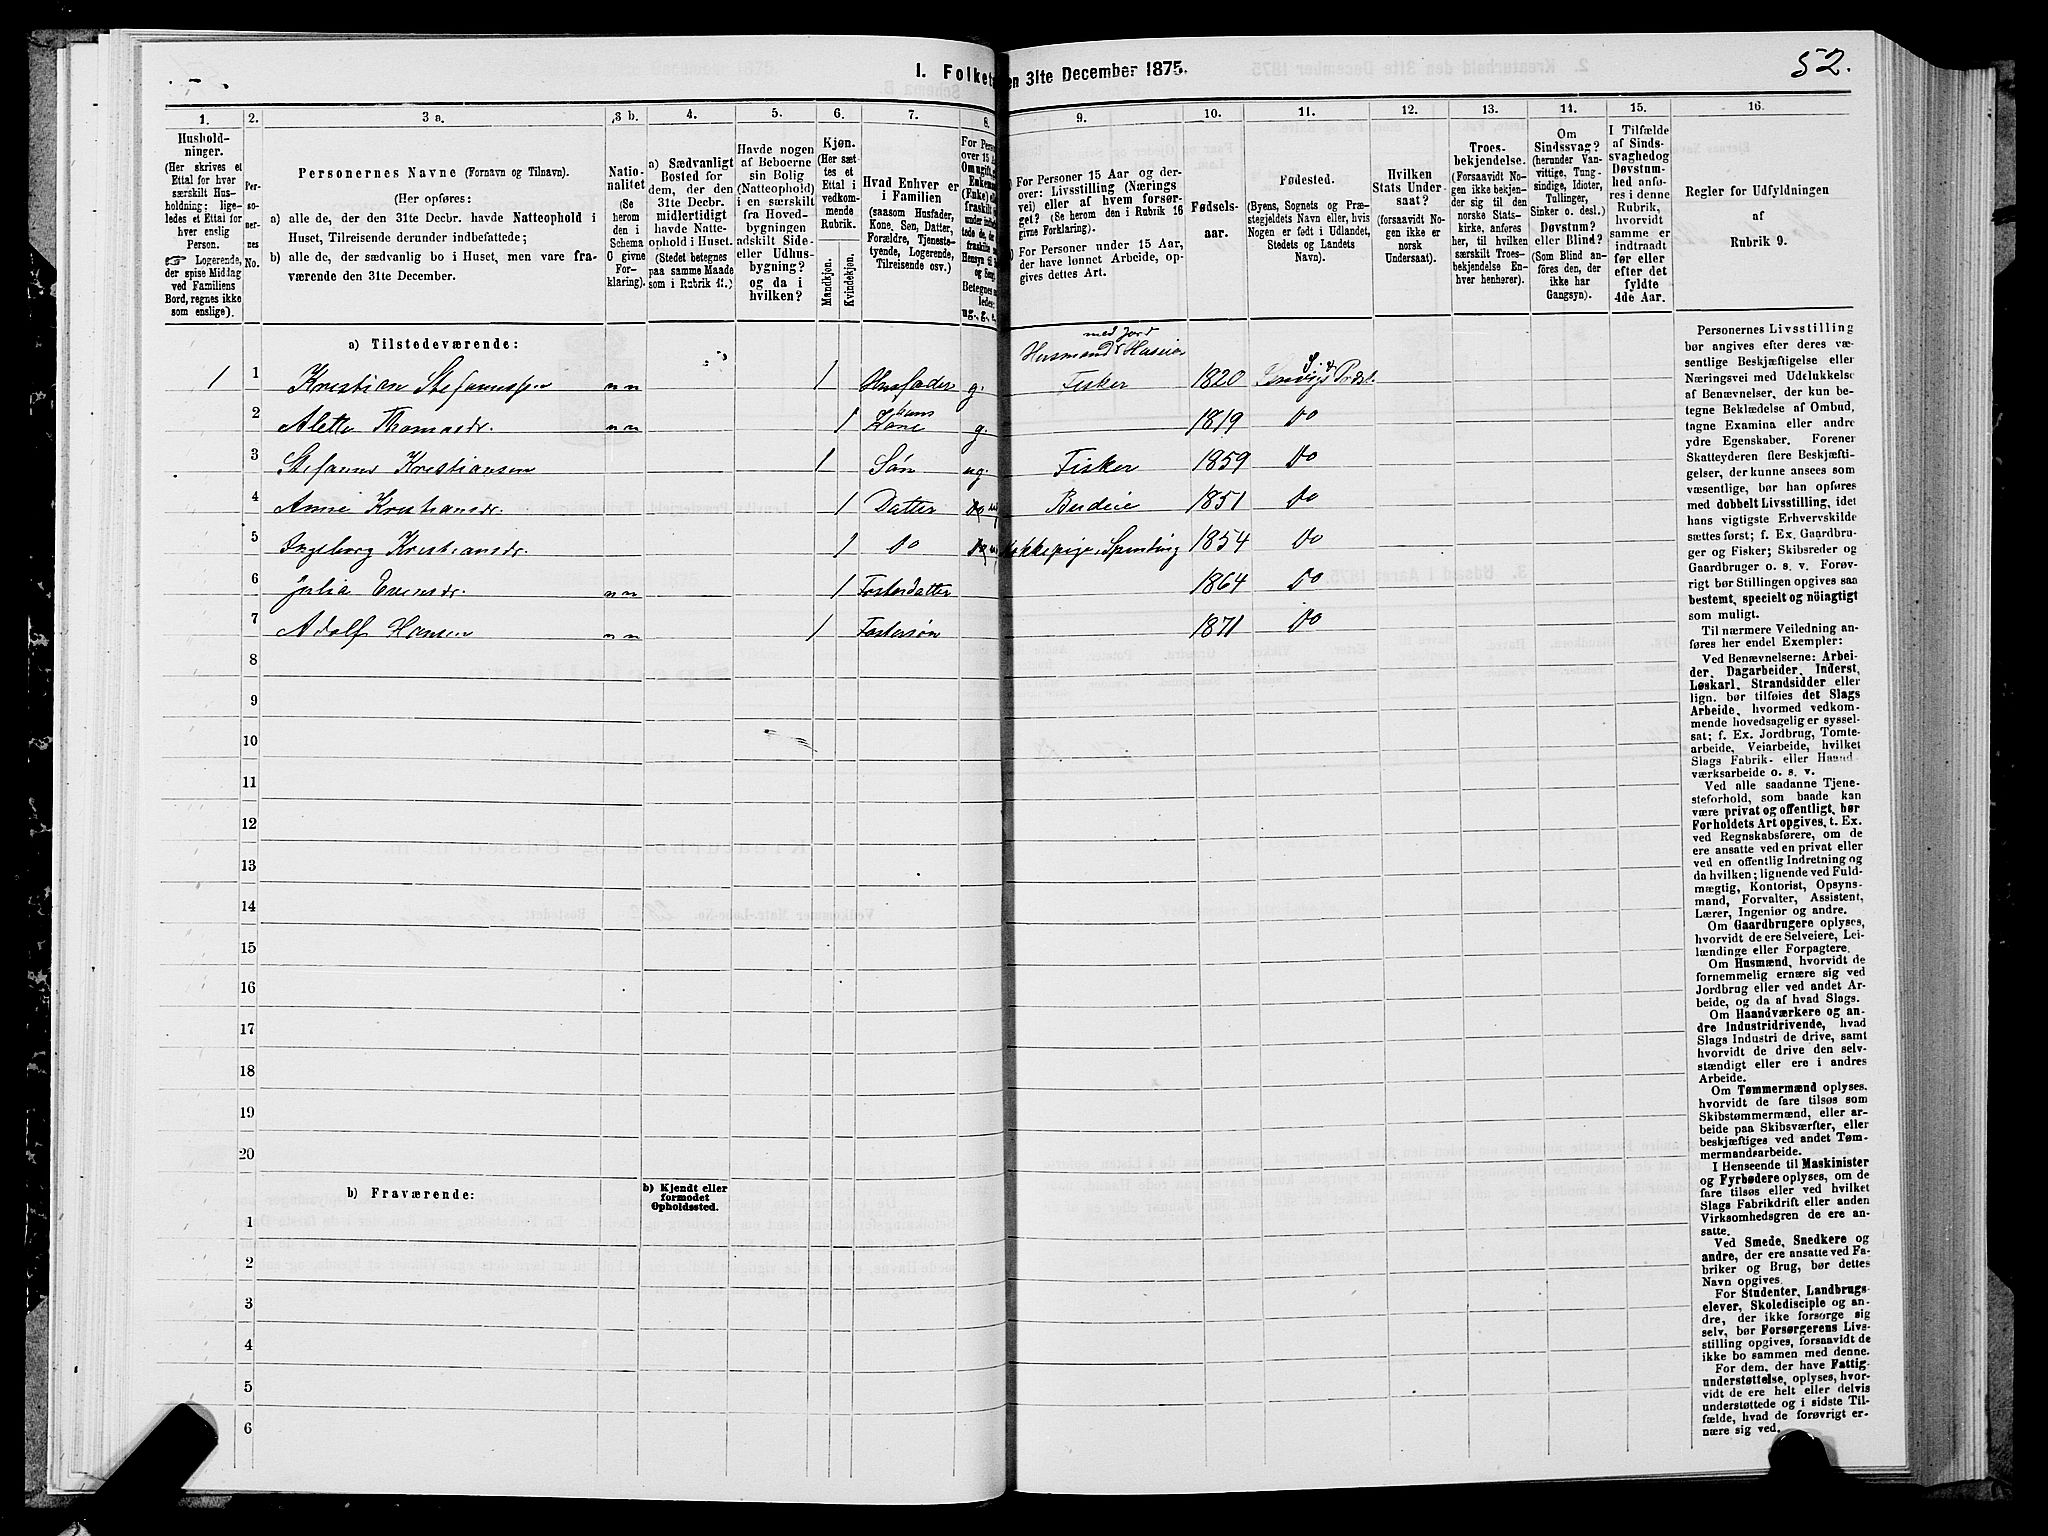 52.
I. Folket en 31te December 1875.
1. 2. 3 a. 3 b. 4. 5. 6. 7. 8. 9. 10. 11. 12. 13. 14. 15. 16.
Hushold-
ninger.
(Her skrives et
Ettal for hver
særskilt Hus-
holdning; lige-
ledes et Ettal for
hver enslig
Person.
☞ Logerende,
der spise Middag
ved Familiens
Bord, regnes ikke
som enslige).
Per-
so-
ner-
nes
No.
Personernes Navne (Fornavn og Tilnavn).
(Her opføres:
a) alle de, der den 31te Decbr. havde Natteophold i
Huset, Tilreisende derunder indbefattede;
b) alle de, der sædvanlig bo i Huset, men vare fra-
værende den 31te December.
Natio-
nalitet
(Se
herom
den i
Schema
O givne
For-
klaring).
a) Sædvanligt
Bosted for
dem, der den
31te Decbr.
midlertidigt
havde Natte-
ophold i Huset.
(Stedet betegnes
paa samme Maade
som i Rubrik 11.)
Havde nogen
af Beboerne
sin Bolig
(Natteophold)
i en særskilt
fra Hoved-
bygningen
adskilt Side-
eller Udhus-
bygning?
og da i
hvilken?
Kjøn.
(Her sæt-
tes et
Ettal i
vedkom-
mende
Rubrik.
Mandkjøn.
Kvindekjøn.
Hvad Enhver er
i Familien
(saasom Husfader,
Kone, Søn, Datter,
Forældre, Tjeneste-
tyende, Logerende,
Tilreisende osv.)
For Person
over 15 Aar
Om ugift, g
Enkema
(Enke) elle
fraskilt
under indbe
tede de, de
fraskilte m
Hensyn til B
og Seng.
Betegnes s
ledes:
ug., g., e.
For Personer 15 Aar og der-
over: Livsstilling (Nærings
vei) eller af hvem forsør-
get? (Se herom den i Rubrik 16
givne Forklaring).
For Personer under 15 Aar,
der have lønnet Arbeide, op-
gives dettes Art.
Fødsels-
aar.
Fødested.
(Byens, Sognets og Præ-
stegjeldets Navn eller, hvis
Nogen er født i Udlandet,
Stedets og Landets
Navn).
Hvilken
Stats Under-
saat?
(forsaavidt No-
gen ikke er
norsk
Undersaat).
Troes-
bekjendelse.
(Forsaavidt No-
gen ikke bekjen-
der sig til den
norske Stats-
kirke, anføres
her, til hvilken
særskilt Troes-
bekjendelse En-
hver henhører).
Om
Sindssvag?
(herunder Van-
vittige, Tung-
sindige, Idioter,
Tullinger,
Sinker o. desl.)
Døvstum?
eller Blind?
(Som Blind an-
føres den, der
ikke har
Gangsyn).
I Tilfælde
af Sinds-
svaghed og
Døvstum-
hed anfø-
res i denne
Rubrik,
hvorvidt
samme er
indtraadt
før eller
efter det
fyldte
4de Aar.
Regler for Udfyldningen
af
Rubrik 9.
a) Tilstedeværende:
med Jord
Husmand & Huseier
1 1 Kristian Stefanussen nn 1 Husfader g. Fisker 1820 Præst.
2 Alette Thomasdr. nn 1 hans Kone g. 1819 Do
3 Stefanus Kristiansen 1 Søn ug. Fisker 1859 Do
4 Anne Kristiansdr. 1 Datter Do Budeie 1851 Do
5 Ingeborg Kristiansdr. 1 Do Do Spinding 1854 Do
6 Julia Evensdr. nn 1 Fosterdatter 1864 Do
7 Adolf Hansen nn 1 Fostersøn 1871 Do
8
9
10
11
12
13
14
15
16
17
18
19
20
b) Fraværende:
b) Kjendt eller
formodet
Opholdssted.
1
2
3
4
5
6
Personernes Livsstilling
bør angives efter deres væ-
sentlige Beskjæftigelse eller
Næringsvei med Udelukkelse
af Benævnelser, der kun be-
tegne Beklædelse af Ombud,
tagne Examina eller andre
ydre Egenskaber. Forener
Skatteyderen flere Beskjæfti-
gelser, der kunne ansees som
væsentlige, bør han opføres
med dobbelt Livsstilling, idet
hans vigtigste Erhvervskilde
sættes først; f. Ex. Gaardbru-
ger og Fisker; Skibsreder og
Gaardbruger o. s. v. Forøv-
rigt bør Stillingen opgives saa
bestemt, specielt og nöiagtigt
som muligt.
Til nærmere Veiledning an-
føres her endel Exempler:
Ved Benævnelserne: Arbei-
der, Dagarbeider, Inderst,
Løskarl, Strandsidder eller
lign. bør tilføies det Slags
Arbeide, hvormed vedkom-
mende hovedsagelig er syssel-
sat; f. Ex. Jordbrug, Tomte-
arbeide, Veiarbeide, hvilket
Slags Fabrik- eller Haand-
værksarbeide o. s. v.
Ved alle saadanne Tjene-
steforhold, som baade kan
være privat og offentligt, bør
Forholdets Art opgives, t. Ex.
ved Regnskabsførere, om de
ere ansatte ved en privat eller
ved en offentlig Indretning og
da hvilken; lignende ved Fuld-
mægtig, Kontorist, Opsyns-
mand, Forvalter, Assistent,
Lærer, Ingeniør og andre.
Om Gaardbrugere oplyses,
hvorvidt de ere Selveiere, Lei-
lændinge eller Forpagtere.
Om Husmænd, hvorvidt de
fornemmelig ernære sig ved
Jordbrug eller ved andet Ar-
beide, og da af hvad Slags.
Om Haandværkere og an-
dre Industridrivende, hvad
Slags Industri de drive, samt
hvorvidt de drive den selv-
stændigt eller ere i andres
Arbeide.
Om Tømmermænd oplyses,
hvorvidt de fare tilsøs som
Skibstømmermænd, eller ar-
beide paa Skibsværfter, eller
beskjæftiges ved andet Tøm-
mermandsarbeide.
I Henseende til Maskinister
og Fyrbødere oplyses, om de
fare tilsøs eller ved hvilket
Slags Fabrikdrift eller anden
Virksomhedsgren de ere an-
satte.
Ved Smede, Snedkere og
andre, der ere ansatte ved Fa-
briker og Brug, bør dettes
Navn opgives.
For Studenter, Landbrugs-
elever, Skoledisciple og an-
dre, der ikke forsørge sig
selv, bør Forsørgerens Livs-
stilling opgives, forsaavidt de
ikke bo sammen med denne.
For dem, der have Fattig-
understøttelse, oplyses, hvor-
vidt de ere helt eller delvis
understøttede og i sidste Til-
fælde, hvad de forøvrigt er-
nære sig ved.